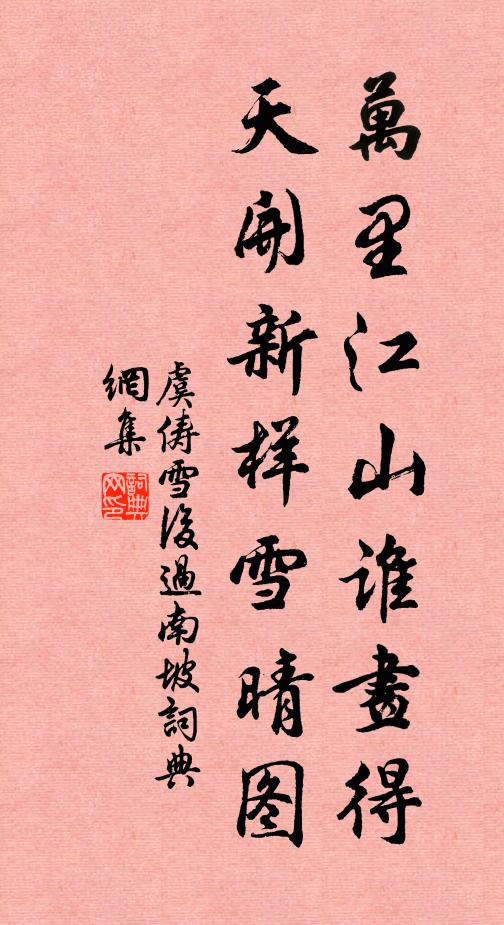 萬里江山誰畫得
天開新样雪晴图
虞俦雪後過南坡詞典
網集
詞典
网印